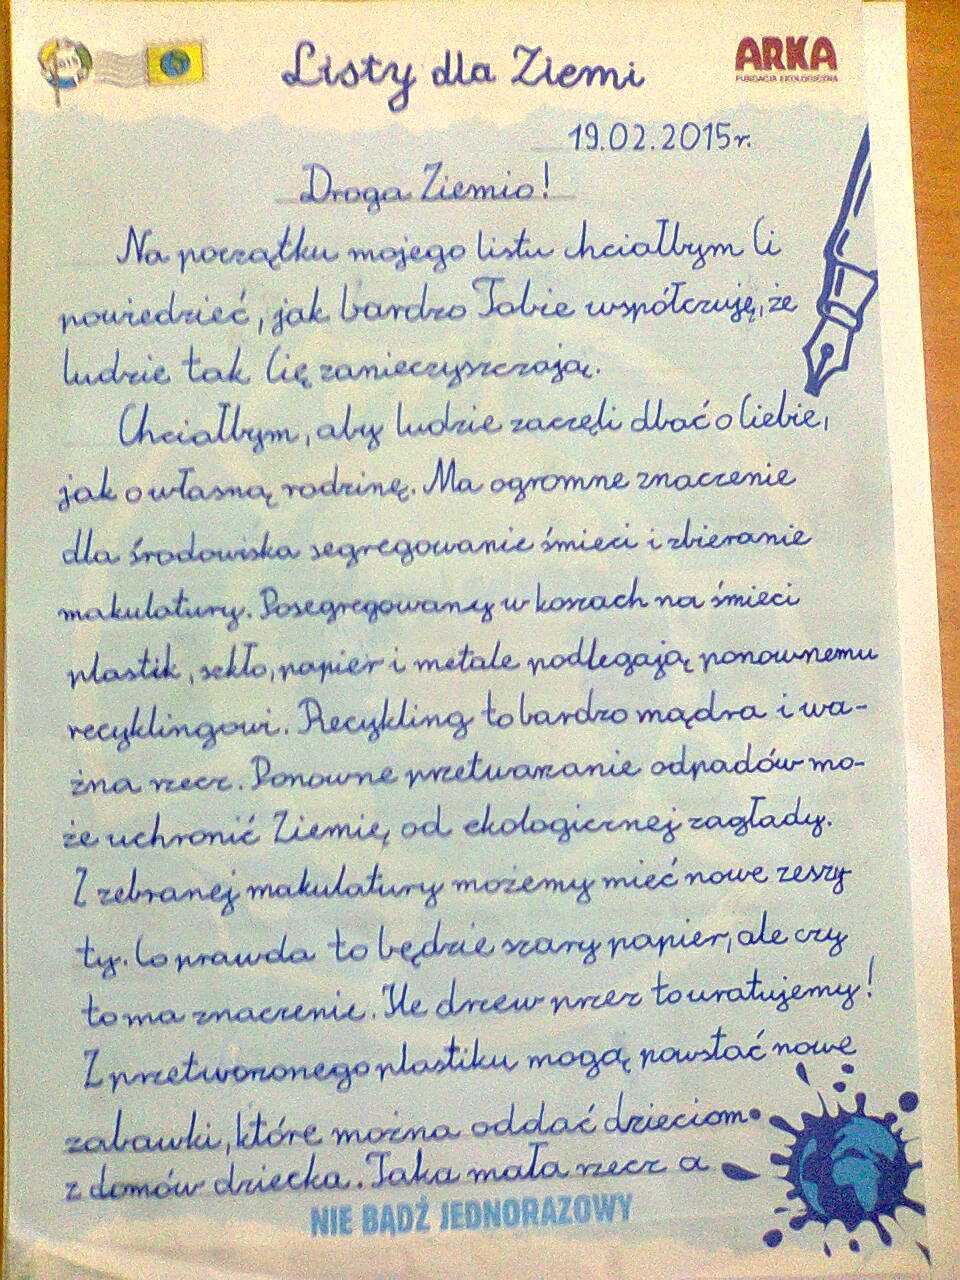 Listy dla Ziemi
ARKA
FUNDACJA EKOLOGICZNA
19.02.2015r.
Droga Ziemio!
Na początku mojego listu chciałbym Ci
powiedzieć, jak bardzo Tobie współczuję, że
ludzie tak Cię zanieczyszczają.
Chciałbym, aby ludzie zaczęli dbać o Ciebie,
jak o własną rodzinę. Ma ogromne znaczenie
dla środowiska segregowanie śmieci i zbieranie
makulatury. Posegregowany w koszach na śmieci
plastik, szkło, papier i metale podlegają ponownemu
recyklingowi. Recykling to bardzo mądra i wa-
żna rzecz. Ponowne przetwarzanie odpadów mo-
że uchronić Ziemię od ekologicznej zagłady.
Z zebranej makulatury możemy mieć nowe zeszy
ty. Co prawda to będzie szary papier, ale czy
to ma znaczenie. Ile drzew przez to uratujemy!
Z przetworzonego plastiku mogą powstać nowe
zabawki, które można oddać dzieciom
z domów dziecka. Taka mała rzecz a
NIE BĄDŹ JEDNORAZOWY